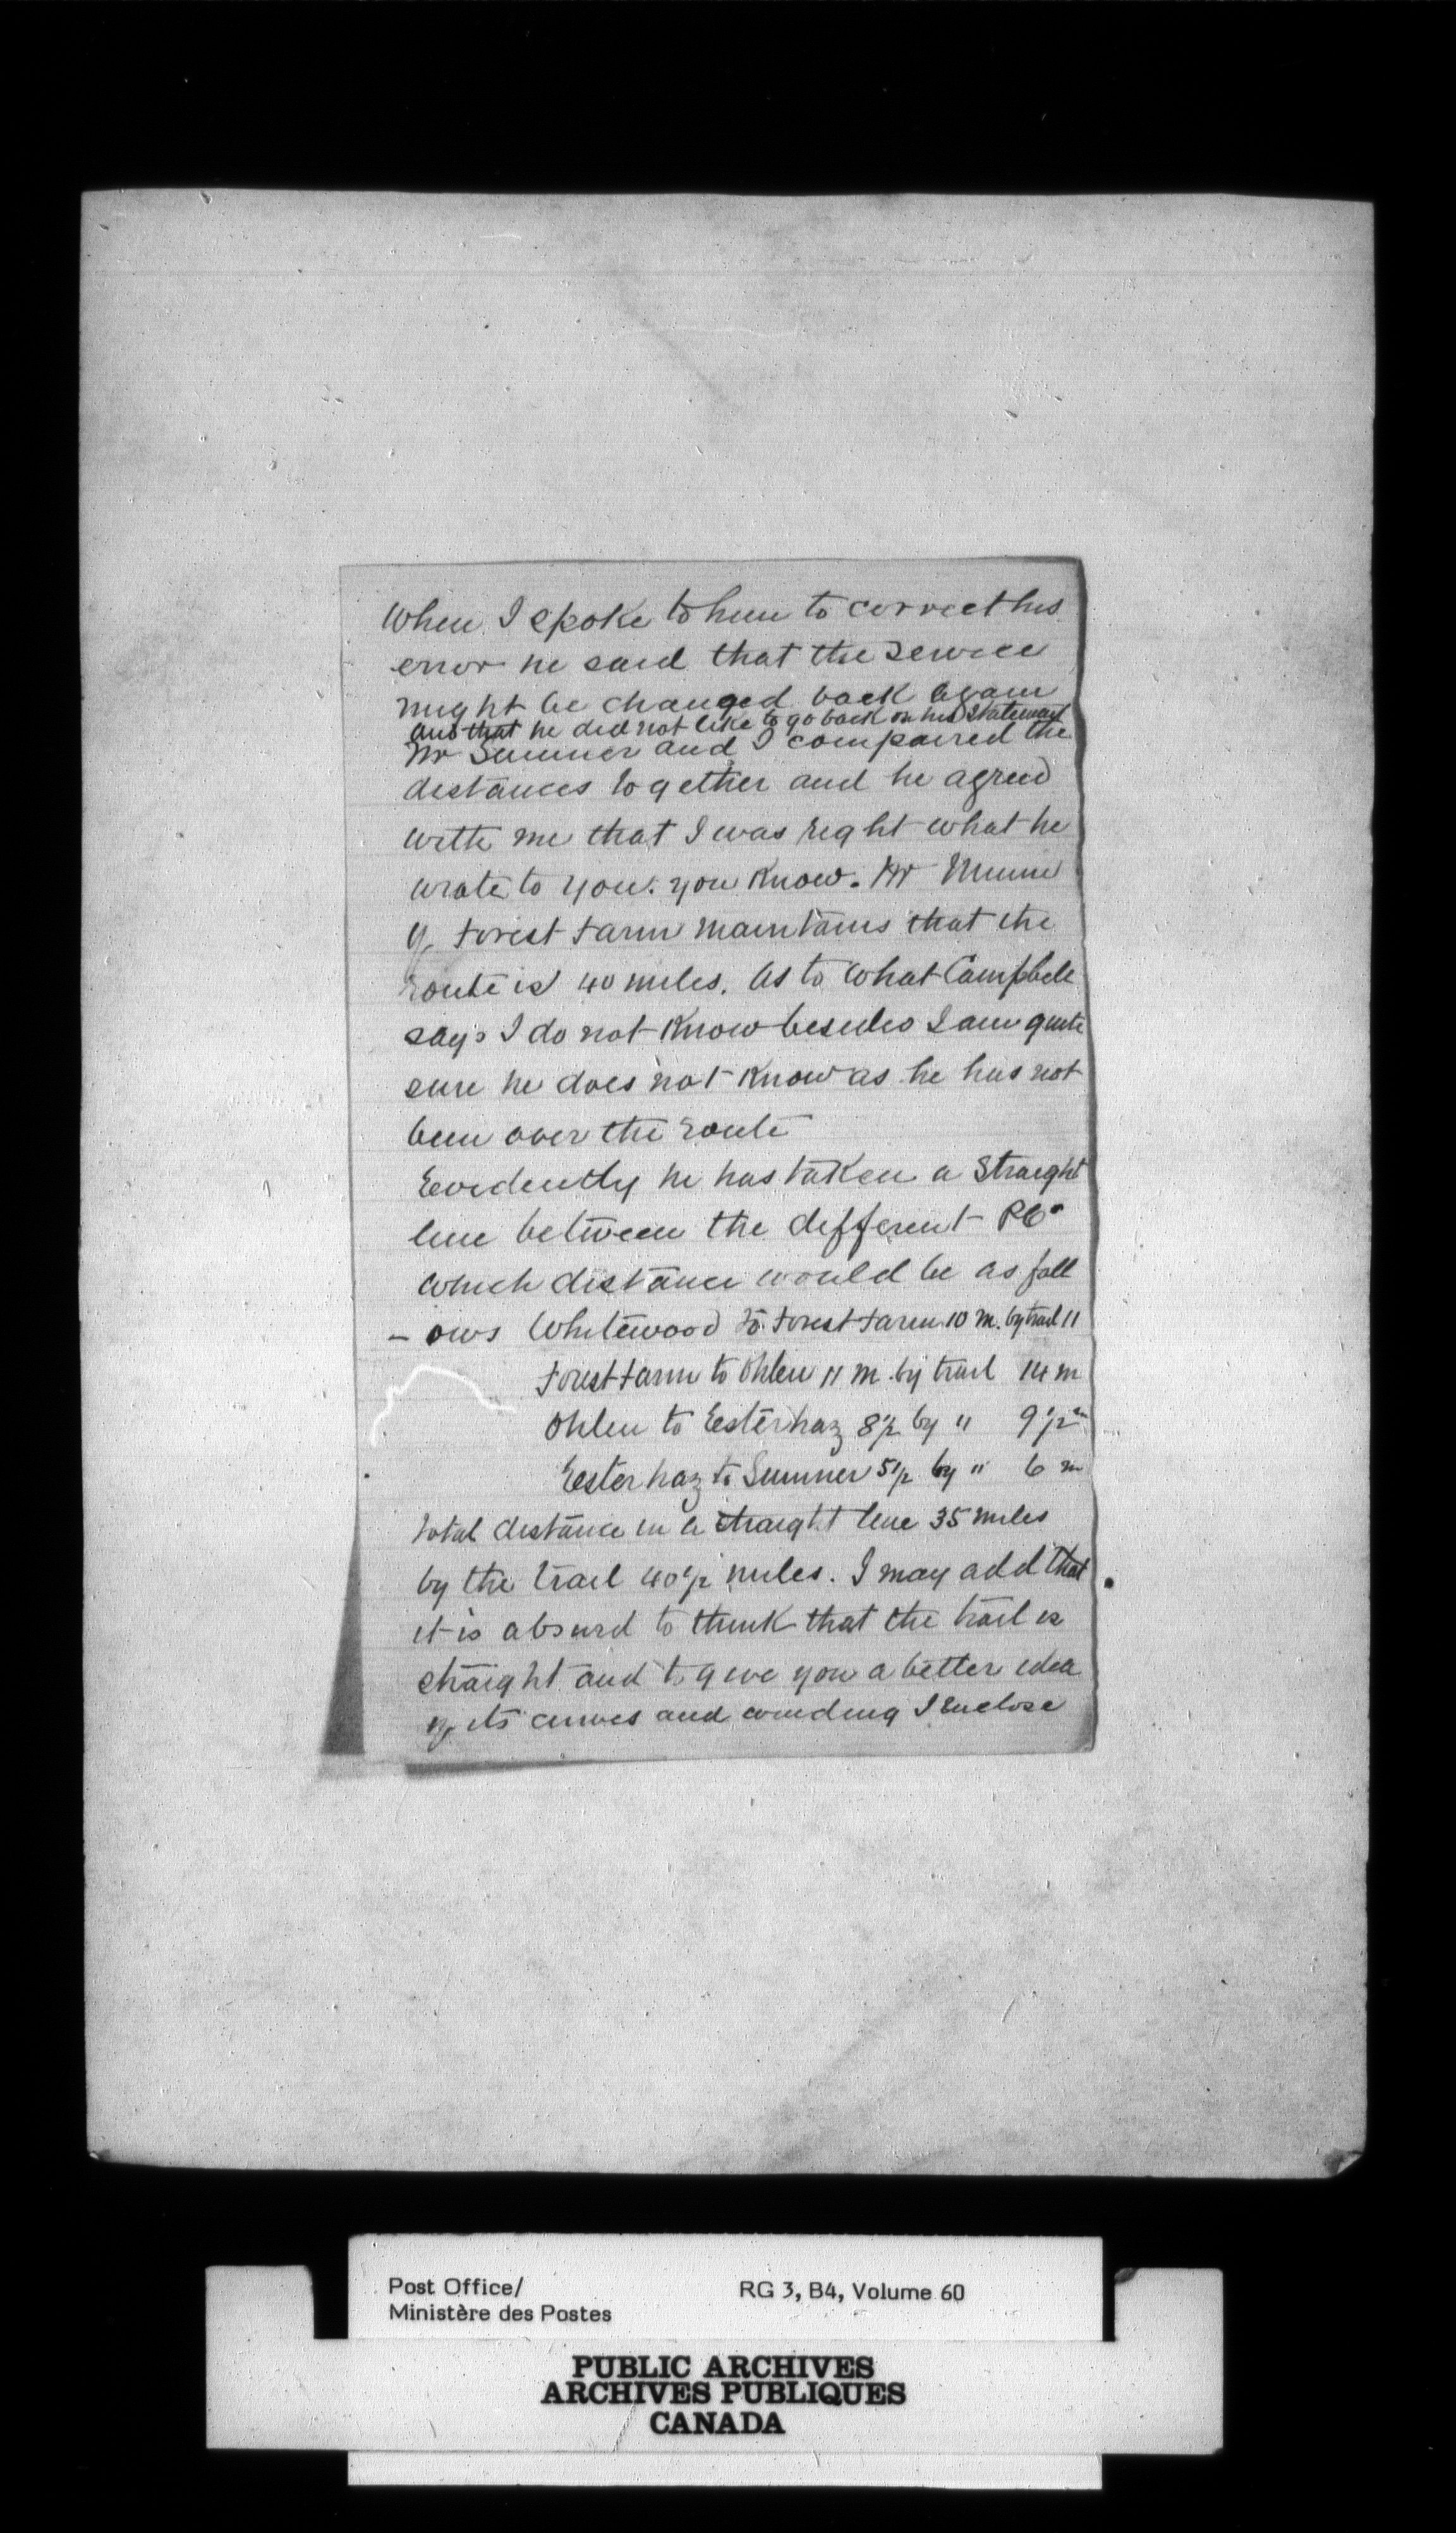 When I spoke to him to correct his
error he said that the service
might be changed back again
and that he did not like to go back on his statement
Mr Sumner and I compaired the
distances together and he agreed
with me that I was right what he
wrote to you. you know. Mr
of Forest Farm maintains that the
route is 40 miles. As to what Campbell
says I do not know besides I am quite
sure he does not know as he has not
been over the route
Evidently he has taken a straight
line between the different PO
which distance would be as foll
- ows Whitewood to Forest Farm 10 m. by trail 11
Forest Farm to Ohlen 11 m by trail 14 m
Ohlen to Esterhaz 8 1/2 by " 9 1/2 m
Esterhaz to Sumner 5 1/2 by " 6 m
total distance in a straight line 35 miles
by the trail 40 1/2 miles. I may add that
it is absurd to think that the trail is
straight and to give you a better idea
of its curves and winding I enclose
Post Office/
Ministère des Postes
RG 3, B4, Volume 60
PUBLIC ARCHIVES
ARCHIVES PUBLIQUES
CANADA